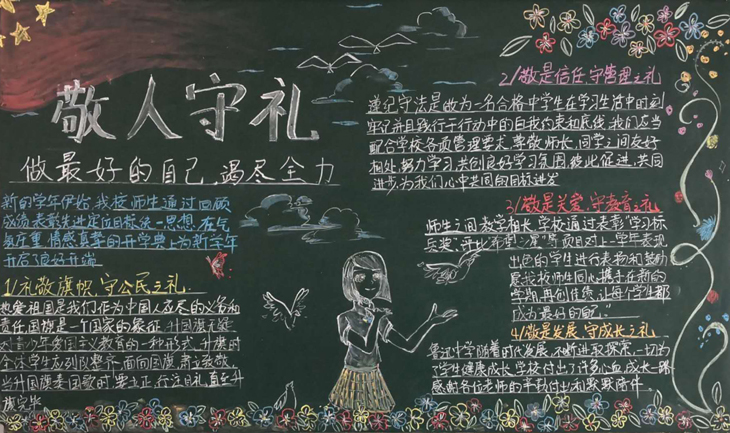 敬人守礼
做最好的自己，竭尽全力
新的学年伊始，我校师生通过回顾
成绩表彰先进定位目标统一思想，在气
氛庄重，情感真挚的开学典上为新学年
开启了良好开端
1/礼敬旗帜，守公民之礼
热爱祖国是我们作为中国人应尽的义务和
责任国旗是一个国家的象征，升国旗
对青少年爱国主义教育的一种形式，升旗时
全体学生应列队整齐，面向国旗，肃立致敬
当升国旗奏国歌时，要立正，行注目礼，直至升
旗完毕
2/敬是信任，守管理之礼
遵纪守法是做为一名合格中学生在学习生活中时刻
牢记并且践行于行动中的自我约束和底线，我们应当
配合学校各项管理要求，尊敬师长，同学之间友好
相处，努力学习，共创良好学习氛围，彼此促进，共同
进步，为我们心中共同的目标进发
3/敬是关爱，守教育之礼
师生之间教学相长，学校通过表彰“学习标
兵奖”，评比等项目对上学年表现
出色的学生进行表扬和鼓励
爱我校师生同心，携手在新的
学期，再创佳绩，让每个学生都
成为最好的自己”
4/敬是发展，守成长之礼
中学随着时代发展，不断进取探索，一切为
了学生健康成长，学校付出了许多心血，成长路
感谢各位老师的辛勤付出和默默陪伴